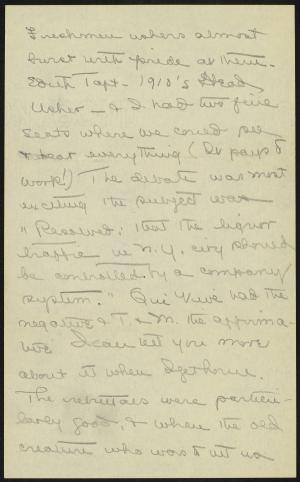 Freshmen ushers almost
burst with pride at them.
Edith Taft - 1910's Head
Usher - & I had two fine
seats where we could see
& hear everything (It pays to
work!) The debate was most
exciting the subject was
"Resolved: that the liquor
traffic in N.Y. city should
be controlled by a company
system." Qui Vive had the
negative & T. & M. the affirma-
tive I can tell you more
about it when I get home.
The rebuttals were particu-
larly good, & when the old
creature who was to let us